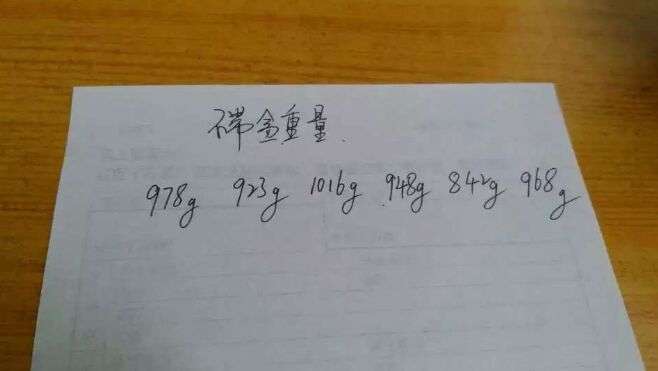 不带盒重量.
978g 923g 1016g 948g 842g 968g